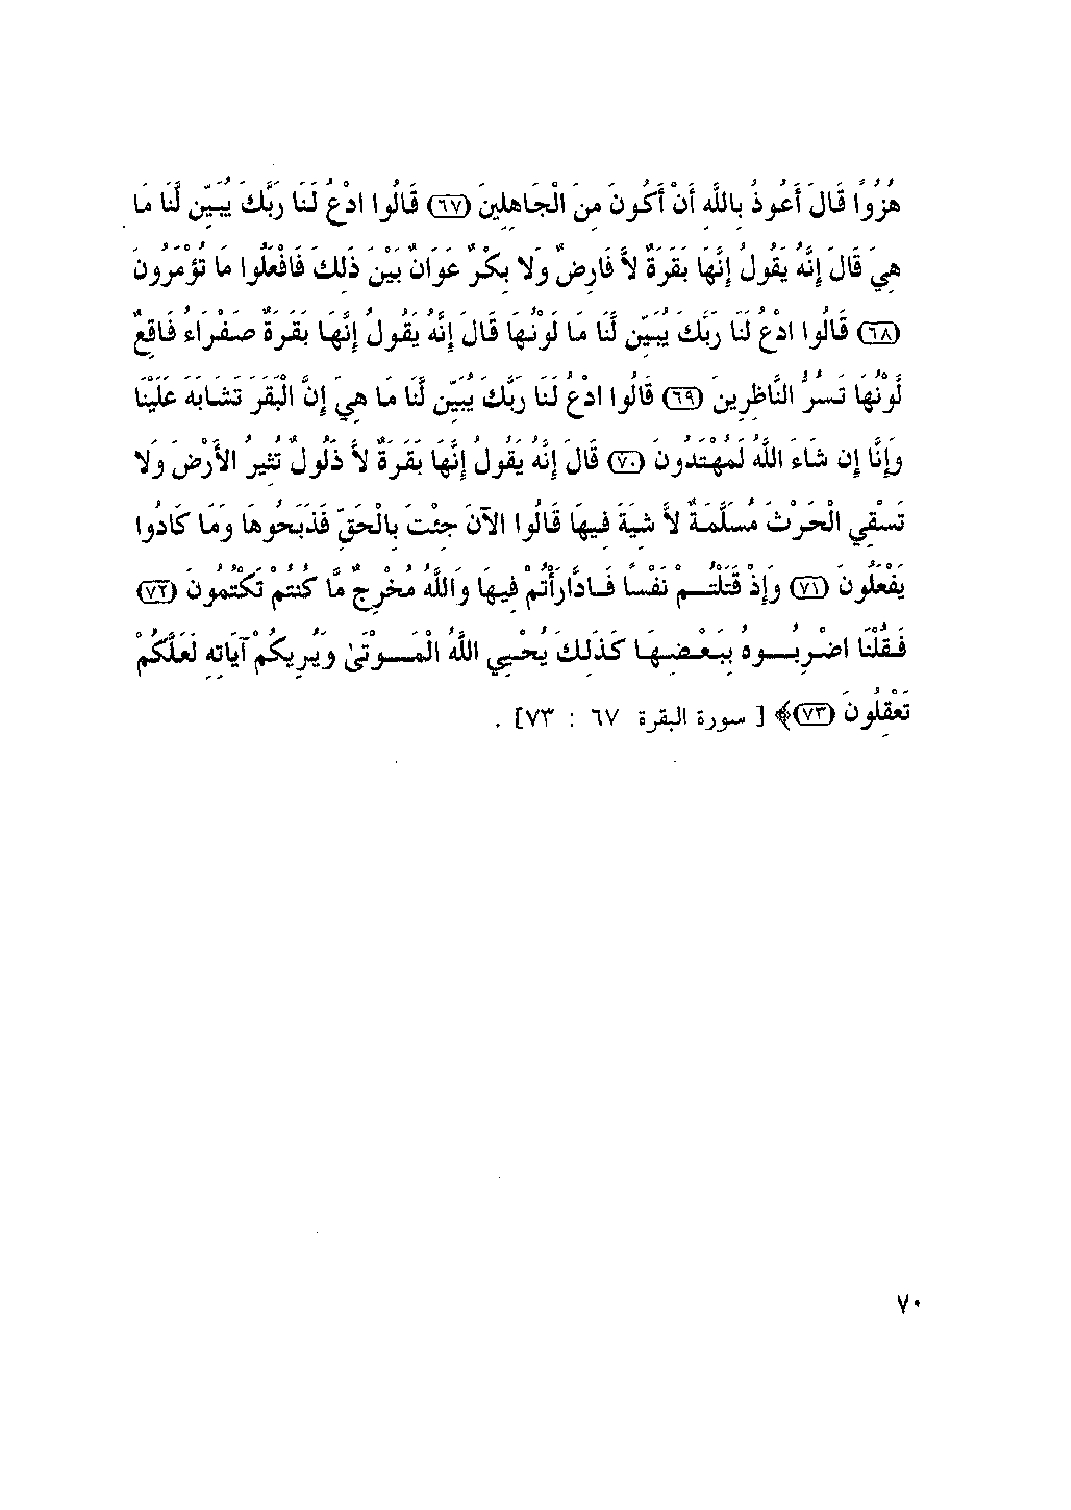 هُزُوًا قَالَ أَعُوذُ بِاللَّهِ أَنْ أَكُونَ مِنَ الْجَاهِلِينَ (٦٧) قَالُوا ادْعُ لَنَا رَبَّكَ يُبَيِّن لَّنَا مَا
هِيَ قَالَ إِنَّهُ يَقُولُ إِنَّهَا بَقَرَةٌ لاَّ فَارِضٌ وَلا بِكْرٌ عَوَانٌ بَيْنَ ذَلِكَ فَافْعَلُوا مَا تُؤْمَرُونَ
(٦٨) قَالُوا ادْعُ لَنَا رَبَّكَ يُبَيِّن لَّنَا مَا لَوْنُهَا قَالَ إِنَّهُ يَقُولُ إِنَّهَا بَقَرَةٌ صَفْرَاءُ فَاقِعٌ
لَّوْنُهَا تَسُرُّ النَّاظِرِينَ (٦٩) قَالُوا ادْعُ لَنَا رَبَّكَ يُبَيِّن لَّنَا مَا هِيَ إِنَّ الْبَقَرَ تَشَابَهَ عَلَيْنَا
وَإِنَّا إِن شَاءَ اللَّهُ لَمُهْتَدُونَ (٧٠) قَالَ إِنَّهُ يَقُولُ إِنَّهَا بَقَرَةٌ لاَّ ذَلُولٌ تُثِيرُ الأَرْضَ وَلا
تَسْقِي الْحَرْثَ مُسَلَّمَةٌ لاَّ شِيَةَ فِيهَا قَالُوا الآنَ جِئْتَ بِالْحَقِّ فَذَبَحُوهَا وَمَا كَادُوا
يَفْعَلُونَ (٧١) وَإِذْ قَتَلْتُمْ نَفْسًا فَادَّارَأْتُمْ فِيهَا وَاللَّهُ مُخْرِجٌ مَّا كُنتُمْ تَكْتُمُونَ (٧٢)
فَقُلْنَا اضْرِبُوهُ بِبَعْضِهَا كَذَلِكَ يُحْيِي اللَّهُ الْمَوْتَىٰ وَيُرِيكُمْ آيَاتِهِ لَعَلَّكُمْ
تَعْقِلُونَ (٧٣)﴾ [ سورة البقرة ٦٧ : ٧٣] .
٧٠